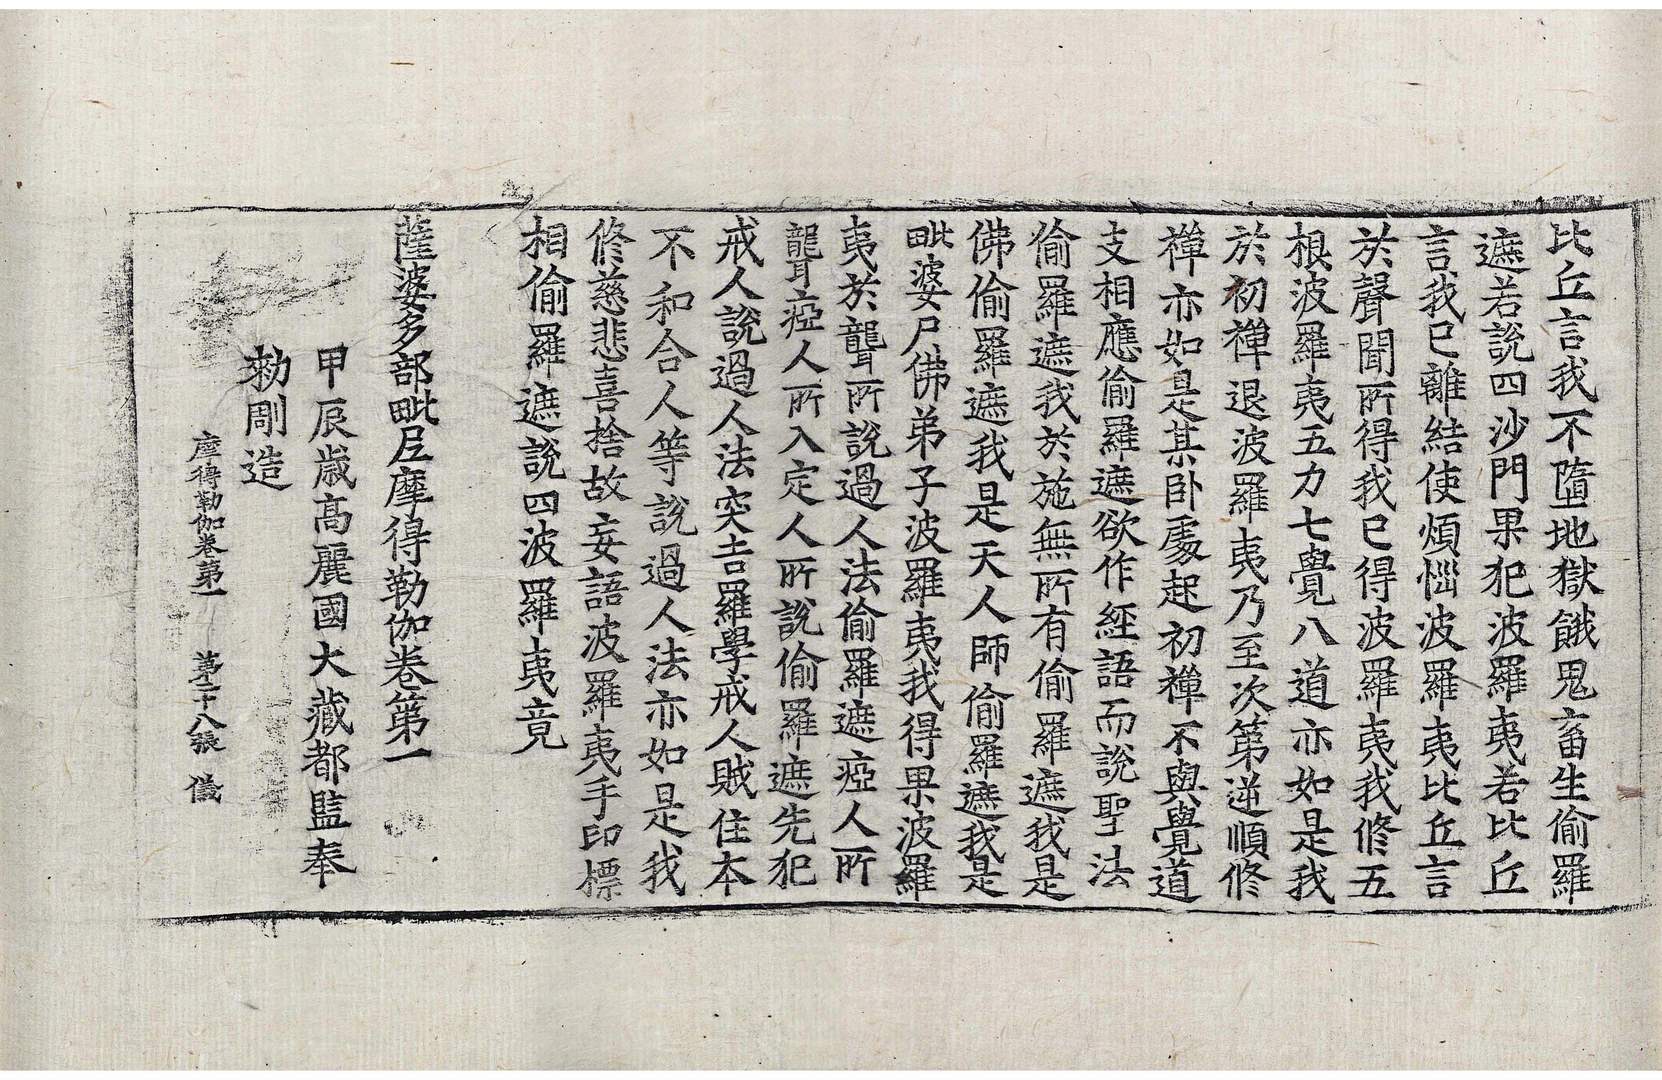 比丘言我不墮地獄餓鬼畜生偷羅
遮若說四沙門果犯波羅夷若比丘
言我已離結使煩惱波羅夷比丘言
於聲聞所得我已得波羅夷我修五
根波羅夷五力七覺八道亦如是我
於初禪退波羅夷乃至次第逆順修
禪亦如是某臥處起初禪不與覺道
支相應偷羅遮欲作經語而說聖法
偷羅遮我於施無所有偷羅遮我是
佛偷羅遮我是天人師偷羅遮我是
毗婆尸佛弟子波羅夷我得果波羅
夷於聾所說過人法偷羅遮瘂人所
聾瘂人所入定人所說偷羅遮先犯
戒人說過人法突吉羅學戒人賊住本
不和合人等說過人法亦如是我
修慈悲喜捨故妄語波羅夷手印標
相偷羅遮說四波羅夷竟
薩婆多部毗尼摩得勒伽卷第一
甲辰歲高麗國大藏都監奉
勑彫造
摩得勒伽卷第一 第二十八張 儀